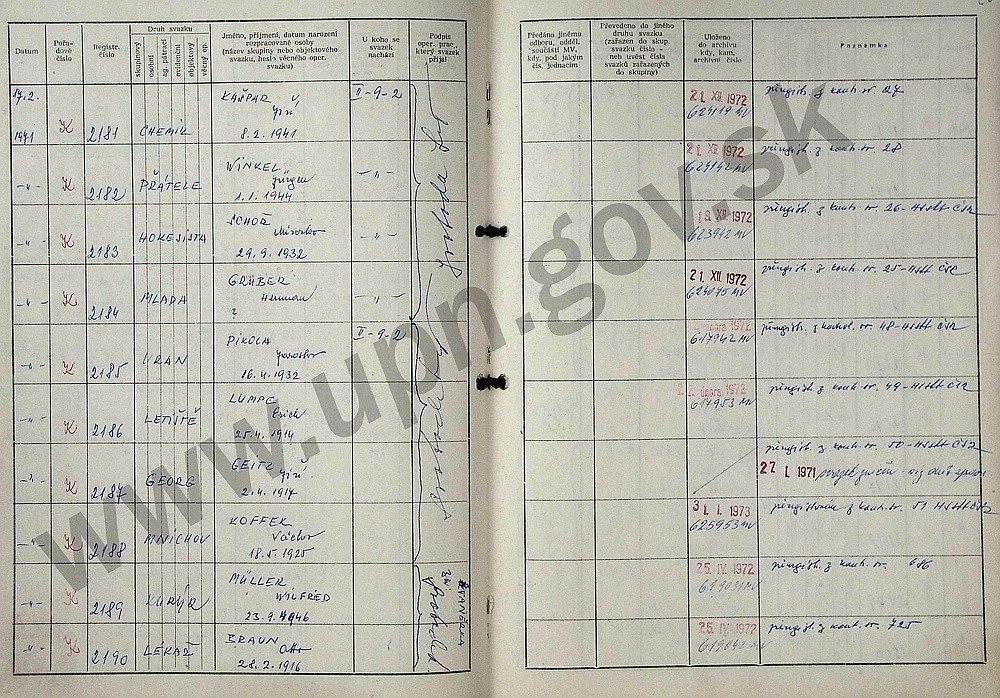 Datum
Pořa-
dové
číslo
Registr.
číslo
Druh svazku
skupinový
osobní
ag. pátrací
evidenční
objektový
věcný op.
Jméno, příjmení, datum narození
rozpracované osoby
(název skupiny nebo objektového
svazku, heslo věcného oper.
svazku)
U koho se
svazek
nachází
Podpis
oper. prac.,
který svazek
přijal
Předáno jinému
odboru, odděl.
součásti MV,
kdy, pod jakým
čís. jednacím
Převedeno do jiného
druhu svazku
(zařazen do skup.
svazku číslo -
neb uvést čísla
svazků zařazených
do skupiny)
Uloženo
do archivu
kdy, kam,
archivní číslo
Poznámka
17.2.
1971 K 2181 CHEMIK
KAŠPAR
Jiří
8.2.1941
II-9-2
21. XII. 1972
624119 MV
přeregistr. z kontr. nr. 27
-"- K 2182 PŘÁTELE
WINKEL
Jürgen
1.1.1944
-"-
21. XII. 1972
624142 MV
přeregistr. z kontr. nr. 28
-"- K 2183 HOKEJISTA
SCHOŘ
Miroslav
29.9.1932
-"-
19. XII. 1972
623942 MV
přeregistr. z kontr. nr. 26-HSStB ČSR
-"- K 2184 MLADA
GRÜBER
Herman
?
-"-
21. XII. 1972
624075 MV
přeregistr. z kontr. nr. 25-HStB ČSR
-"- K 2185 URAN
PIKOLA
Jaroslav
16.4.1932
II-9-2
února 1972
617942 MV
přeregistr. z kontrol. nr. 48-HSStB ČSR
-"- K 2186 LETIŠTĚ
LUMPE
Erich
25.4.1914
února 1972
617953 MV
přeregistr. z kontr. nr. 49-HSStB ČSR
-"- K 2187 GEORG
GEITZ
Jiří
2.4.1917
přeregistr. z kontr. nr. 50-HSStB ČSR
27. I. 1971
-"- K 2188 MNICHOV
KOFFER
Václav
18.5.1925
31. I. 1973
625953 MV
z kontr. nr. 51 HSStB ČSR
-"- K 2189 KURÝR
MÜLLER
WILFRED
23.9.1946
25. IV. 1972
619031 MV
přeregistr. z kontr. nr. 686
-"- K 2190 LÉKAŘ
BRAUN
Otto
28.2.1916
25. IV. 1972
619042 MV
přeregistr. z kontr. nr. 725
www.upn.gov.sk